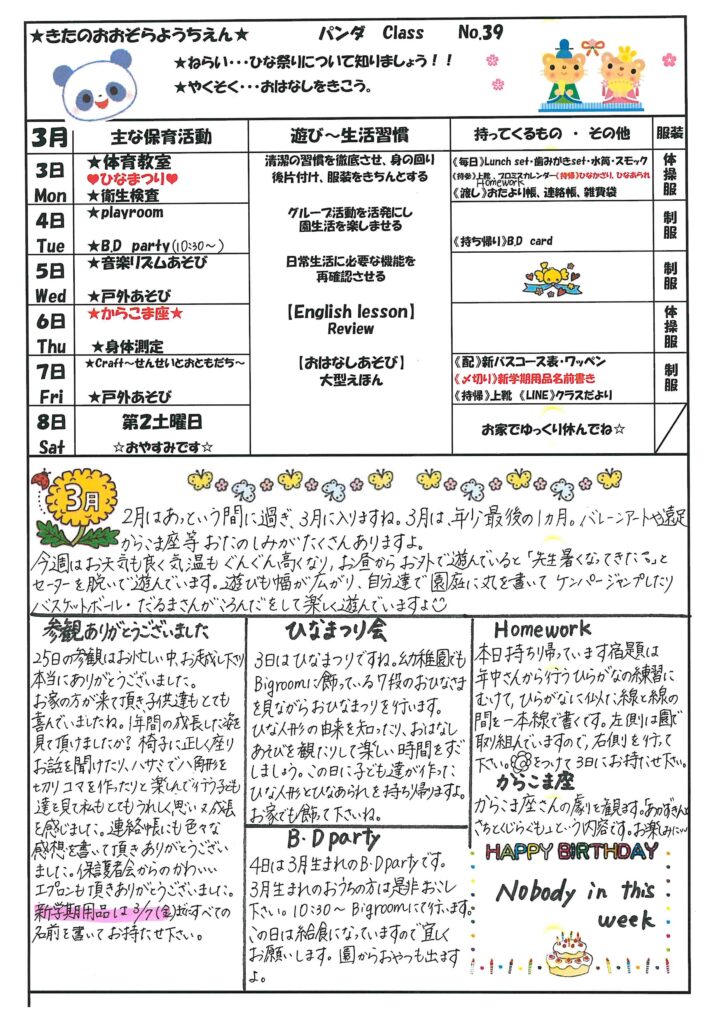 ★きたのおおぞらようちえん★ パンダ Class No.39
★ねらい・・・ひな祭りについて知りましょう！！
★やくそく・・・おはなしをきこう。
3月 主な保育活動 遊び～生活習慣 持ってくるもの ・ その他 服装
3日 Mon
★体育教室
♥ひなまつり♥
★衛生検査
清潔の習慣を徹底させ、身の回り
後片付け、服装をきちんとする
《毎日》Lunch set・歯みがきset・水筒・スモック
《持参》上靴、プロミスカレンダー《持帰》ひなかざり、ひなあられ
Homework
《渡し》おたより帳、連絡帳、雑費袋
体操服
4日 Tue
★playroom
★B.D party(10:30～)
グループ活動を活発にし
園生活を楽しませる
《持ち帰り》B.D card
制服
5日 Wed
★音楽リズムあそび
★戸外あそび
日常生活に必要な機能を
再確認させる
制服
6日 Thu
★からこま座★
★身体測定
【English lesson】
Review
体操服
7日 Fri
★Craft～せんせいとおともだち～
★戸外あそび
【おはなしあそび】
大型えほん
《配》新バスコース表・ワッペン
《〆切り》新学期用品名前書き
《持帰》上靴 《LINE》クラスだより
制服
8日 Sat
第2土曜日
☆おやすみです☆
お家でゆっくり休んでね☆
3月
2月はあっという間に過ぎ、3月に入りますね。3月は、年少最後の1ヵ月。バレーンアートや遠足
からこま座等 おたのしみがたくさんありますよ。
今週はお天気も良く気温もぐんぐん高くなり、お昼からお外で遊んでいると「先生暑くなってきた〜。」と
セーターを脱いで遊んでいます。遊びも幅が広がり、自分達で園庭に丸を書いてケンパージャンプしたり
バスケットボール・だるまさんがころんだをして楽しく遊んでいますよ
参観ありがとうございました
25日の参観はお忙しい中、お越し下さり
本当にありがとうございました。
お家の方が来て頂き子供達もとても
喜んでいましたね。1年間の成長した姿を
見て頂けましたか？椅子に正しく座り
お話を聞けたり、ハサミで八角形を
切りコマを作ったりと楽しんで行う子ども
達を見て私もとてもうれしく思い又成長
を感じました。連絡帳にも色々な
感想を書いて頂きありがとうござい
ました。保護者会からのかわいい
エプロンも頂きありがとうございました。
新学期用品は3/7(金)までにすべての
名前を書いてお持たせ下さい。
ひなまつり会
3日はひなまつりですね。幼稚園でも
Bigroomに飾っている7段のおひなさま
を見ながらおひなまつりを行います。
ひな人形の由来を知ったり、おはなし
あそびを観たりして楽しい時間をすご
しましょう。この日に子ども達が作った
ひな人形とひなあられを持ち帰りますよ。
お家でも飾って下さいね。
B.D party
4日は3月生まれのB.D partyです。
3月生まれのおうちの方は是非おこし
下さい。10:30～ Bigroomにて行います。
この日は給食になっていますので宜しく
お願いします。園からおやつも出ます
よ。
Homework
本日持ち帰っています宿題は
年中さんから行うひらがなの練習に
むけて、ひらがなに似た線と線の
間を一本線で書くです。左側は園で
取り組んでいますので、右側を行って
下さい。をつけて3日にお持たせ下さい。
からこま座
からこま座さんの劇を観ます。あかずきんと
さちとくじらぐもという内容です。お楽しみに…
HAPPY BIRTHDAY
Nobody in this
week